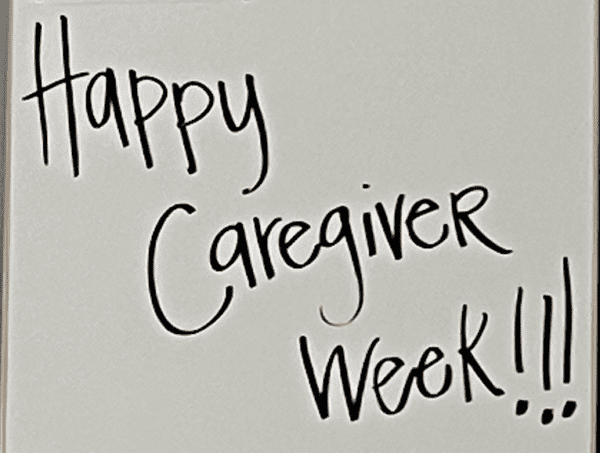 Happy
Caregiver
Week!!!